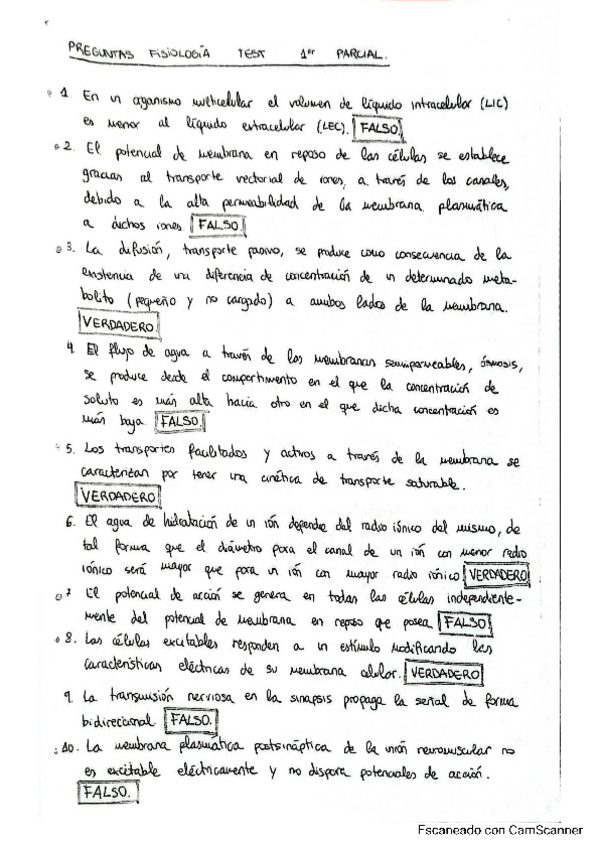 PREGUNTAS FISIOLOGÍA TEST 1er PARCIAL.
1. En un organismo multicelular el volumen de líquido intracelular (LIC)
es menor al líquido extracelular (LEC). FALSO
2. El potencial de membrana en reposo de las células se establece
gracias al transporte vectorial de iones, a través de los canales,
debido a la alta permeabilidad de la membrana plasmática
a dichos iones. FALSO
3. La difusión, transporte pasivo, se produce como consecuencia de la
existencia de una diferencia de concentración de un determinado meta-
bolito (pequeño y no cargado) a ambos lados de la membrana.
VERDADERO
4. El flujo de agua a través de las membranas semipermeables, ósmosis,
se produce desde el compartimento en el que la concentración de
soluto es más alta hacia otro en el que dicha concentración es
más baja. FALSO.
5. Los transportes facilitados y activos a través de la membrana se
caracterizan por tener una cinética de transporte saturable.
VERDADERO
6. El agua de hidratación de un ión depende del radio iónico del mismo, de
tal forma que el diámetro para el canal de un ión con menor radio
iónico será mayor que para un ión con mayor radio iónico. VERDADERO
7. El potencial de acción se genera en todas las células independiente-
mente del potencial de membrana en reposo que posea. FALSO
8. Las células excitables responden a un estímulo modificando las
características eléctricas de su membrana celular. VERDADERO
9. La transmisión nerviosa en la sinapsis propaga la señal de forma
bidireccional. FALSO.
10. La membrana plasmática postsináptica de la unión neuromuscular no
es excitable eléctricamente y no dispara potenciales de acción.
FALSO.
Escaneado con CamScanner